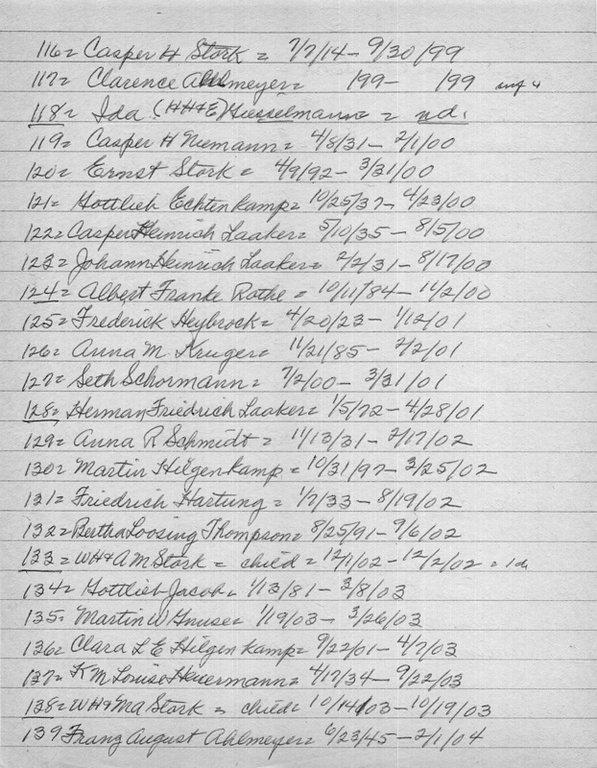 116= Casper H Stork = 7/7/14 - 9/30/99
117= Clarence Ahlmeyer= 199- 199
118= Ida (HH&E) Hesselmann = nd.
119= Casper H Niemann= 4/8/31- 2/1/00
120= Ernst Stork = 4/9/92- 3/31/00
121= Gottlieb Echtenkamp= 10/25/37- 4/23/00
122= Casper Heinrich Laaker= 5/10/35- 8/5/00
123= Johann Heinrich Laaker= 2/2/31- 8/17/00
124= Albert Franke Rothe = 10/11/84- 11/2/00
125= Frederick Heybrock= 4/20/23- 1/12/01
126= Anna M. Kruger= 11/21/85- 2/2/01
127= Seth Schormann= 7/2/00- 3/31/01
128= Herman Friedrich Laaker= 1/5/72- 4/28/01
129= Anna R Schmidt = 11/13/31- 2/17/02
130= Martin Hilgenkamp= 10/31/97- 3/25/02
131= Friedrich Hartung = 1/7/33- 8/19/02
132= Bertha Loosing Thompson= 8/25/91- 9/6/02
133= WH&AM Stork = child = 12/1/02- 12/2/02 = 1d
134= Gottlieb Jacob= 1/13/81- 3/8/03
135= Martin W Gnuse= 1/19/03- 3/26/03
136= Clara L E Hilgenkamp= 9/22/01- 4/7/03
137= K M Louise Heuermann= 4/17/34- 9/22/03
138= WH&MA Stork = child= 10/14/03- 10/19/03
139 Franz August Ahlmeyer= 6/23/45- 2/1/04